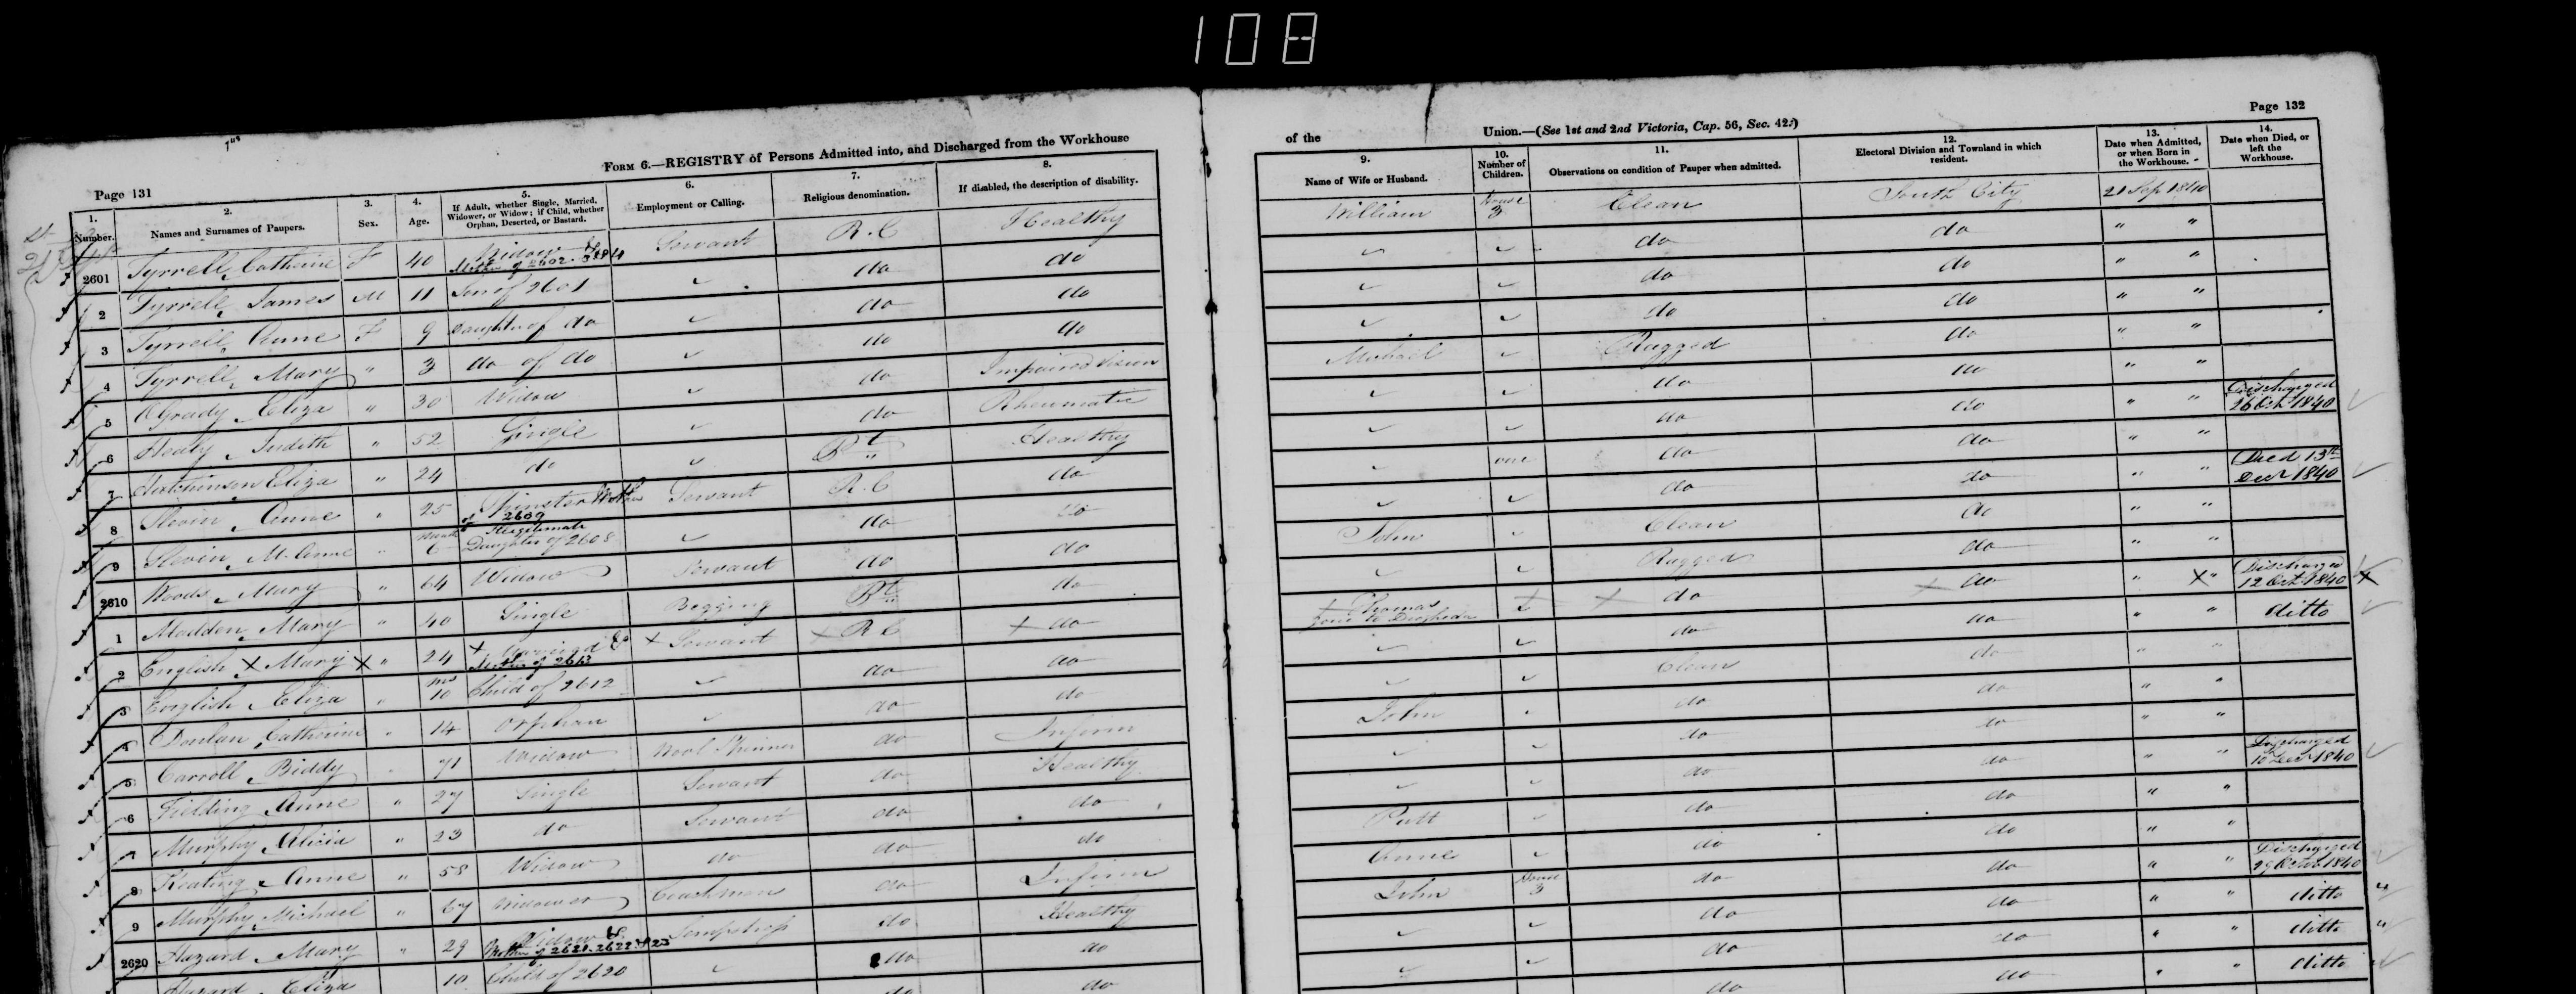 108
Page 131
FORM 6.—REGISTRY of Persons Admitted into, and Discharged from the Workhouse
1. Number. 2. Names and Surnames of Paupers. 3. Sex. 4. Age. 5. If Adult, whether Single, Married, Widower, or Widow; if Child, whether Orphan, Deserted, or Bastard. 6. Employment or Calling. 7. Religious denomination. 8. If disabled, the description of disability.
2601 Tyrrell, Catherine F 40 Widow & Mother of 2602. 3 & 4 Servant R.C Healthy
2 Tyrrell, James M 11 Son of 2601 do do
3 Tyrrell, Anne F 9 Daughter of do do do
4 Tyrrell, Mary " 3 do of do do do
5 O'Grady, Eliza " 30 Widow do Impaired Vision
6 Healy, Judith " 52 Single do Rheumatic
7 Hutchinson Eliza " 24 do Pt Healthy
8 Slevin, Anne " 25 Spinster Mother of 2609 Servant R.C do
9 Slevin, M. Anne " 6 Illegitimate Daughter of 2608 do do
2610 Woods, Mary " 64 Widow Servant do do
1 Madden, Mary " 40 Single Begging Pt do
2 English X Mary X " 24 X Married & Mother of 2613 X Servant X R C X do
3 English, Eliza " Mos 10 Child of 2612 do do
4 Donlan, Catherine " 14 Orphan do do
5 Carroll, Biddy " 71 Widow Wool Spinner do Infirm
6 Fielding Anne " 27 Single Servant do Healthy
7 Murphy, Alicia " 23 do Servant do do
8 Keating, Anne " 58 Widow do do do
9 Murphy, Michael " 67 Widower Coachman do Infirm
2620 Hazard, Mary " 29 Widow & Mother of 2621. 2622 & 23 do Healthy
Hazard, Eliza 10 Child of 2620 do do
do do
Page 132
of the Union.—(See 1st and 2nd Victoria, Cap. 56, Sec. 42.)
9. Name of Wife or Husband. 10. Number of Children. 11. Observations on condition of Pauper when admitted. 12. Electoral Division and Townland in which resident. 13. Date when Admitted, or when Born in the Workhouse. 14. Date when Died, or left the Workhouse.
William House 3 Clean South City 21 Sep 1840
do do " "
do do " "
do do " "
Michael Ragged do " "
do do " "
do do " " Discharged 26 Oct 1840
one do do " "
do do " " Died 13th Decr 1840
John Clean do " "
Ragged do " "
X Thomas gone to Drogheda X X do X do " X " Discharged 12 Oct 1840 X
do do " " ditto
Clean do " "
John do do " "
do do " "
do do " " Discharged 10 Decr 1840
Patt do do " "
Anne do do " "
John House 3 do do " " Discharged 1840
do do " " ditto "
do do " " ditto "
do do " " ditto